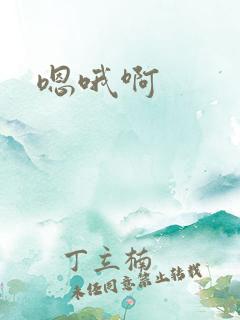 嗯哦啊
丁立楠
未经同意禁止转载